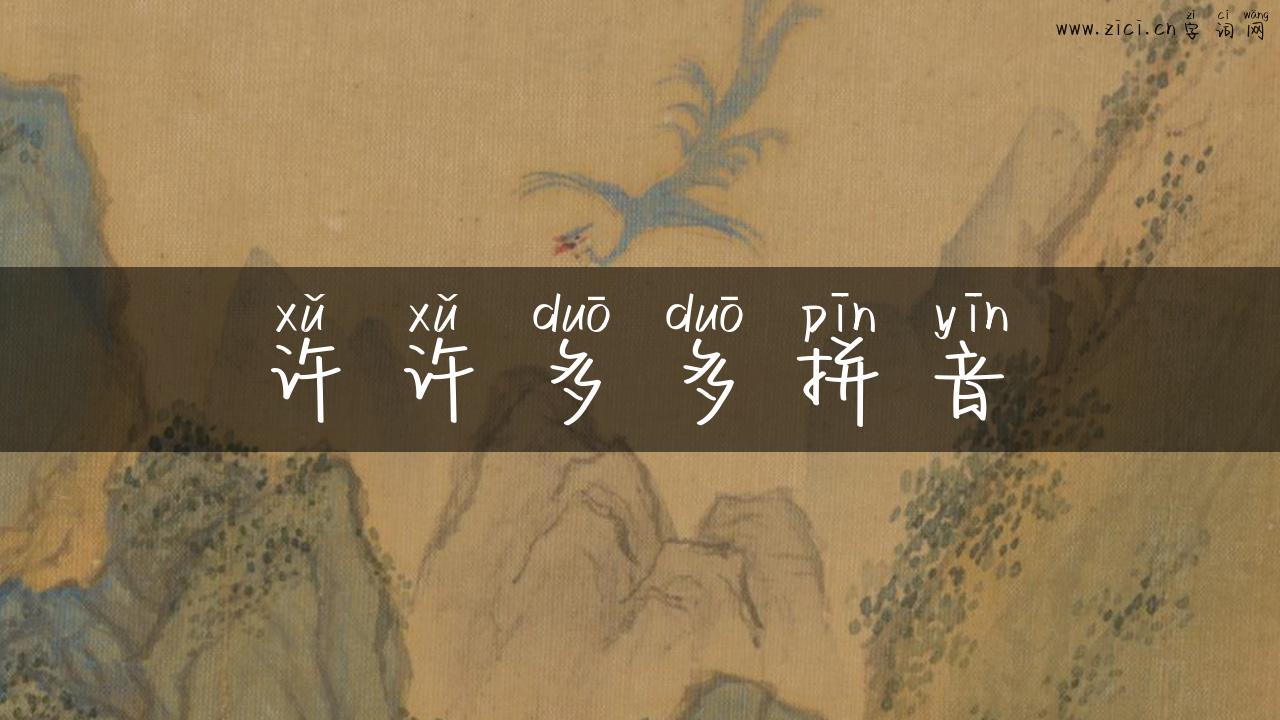 zì cí wǎng
www.zici.cn 字词网
xǔ xǔ duō duō pīn yīn
许许多多拼音